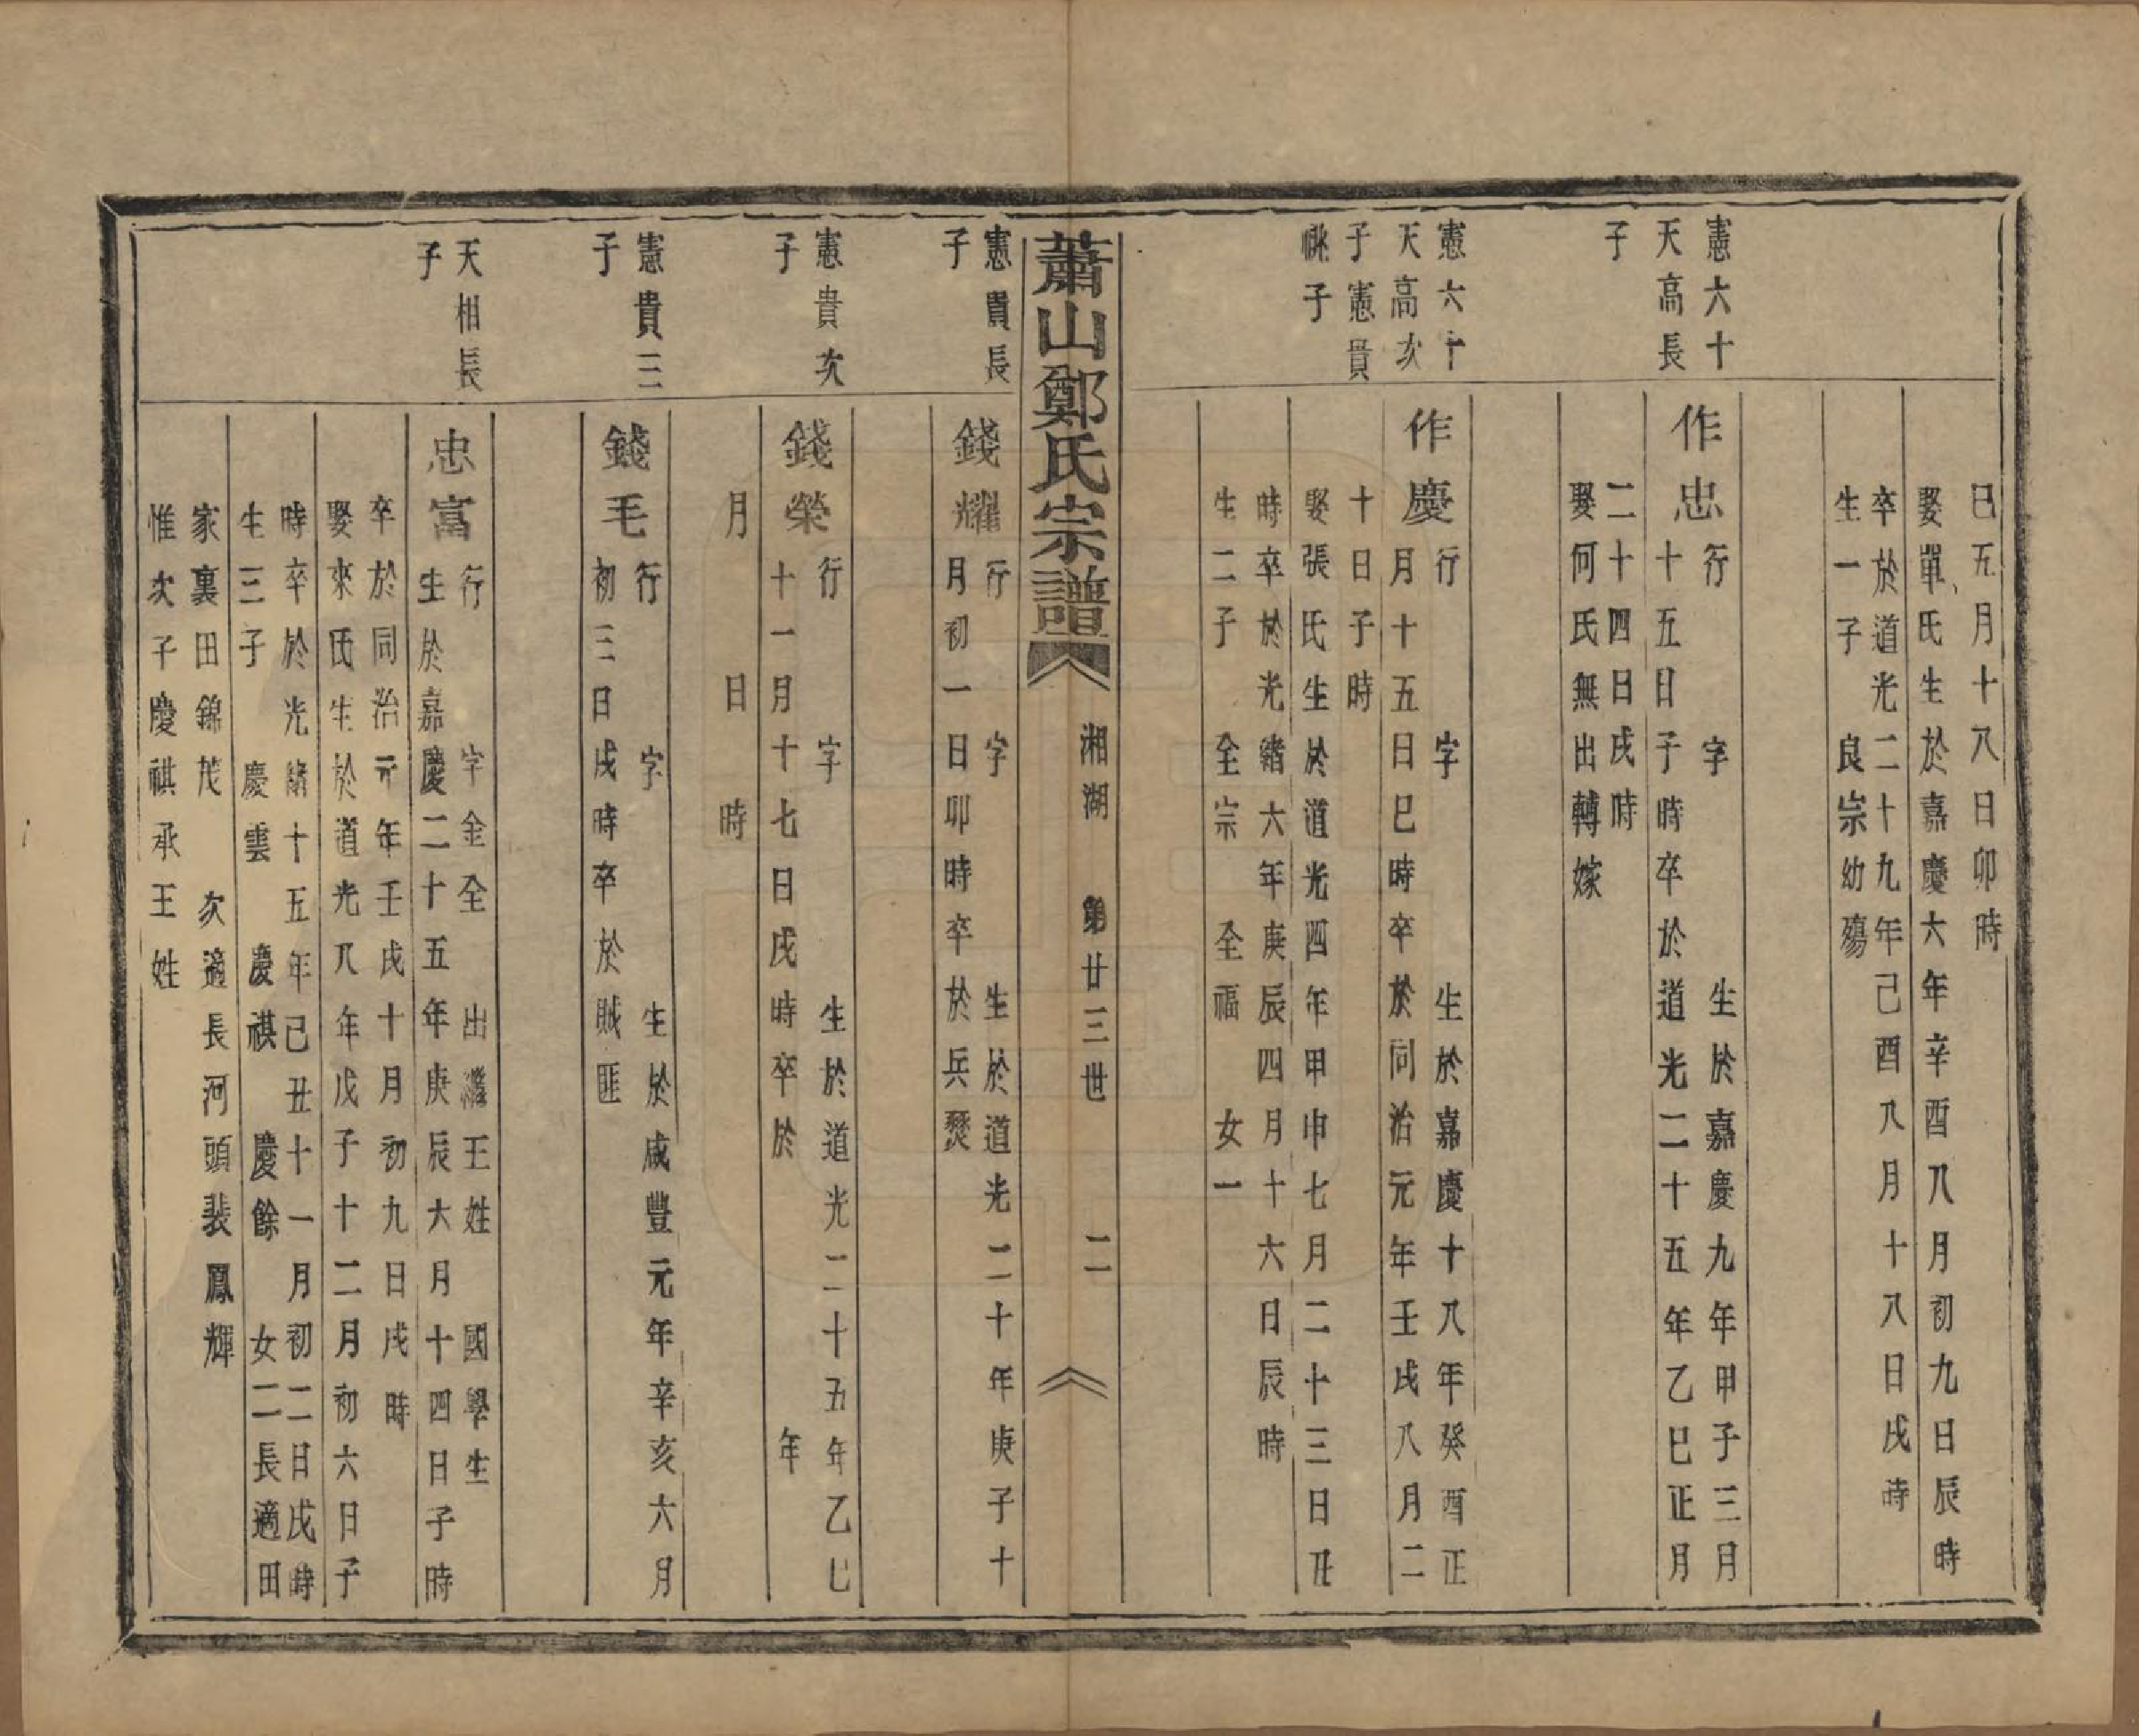 巳五月十八日卯時
娶單氏生於嘉慶六年辛酉八月初九日辰時
卒於道光二十九年己酉八月十八日戌時
生一子　良宗幼殤
憲六十
天高長
子
作忠
行　字　生於嘉慶九年甲子三月
十五日子時卒於道光二十五年乙巳正月
二十四日戌時
娶何氏無出轉嫁
憲六十
天高次
子憲貴
祧子
作慶
行　字　生於嘉慶十八年癸酉正
月十五日巳時卒於同治元年壬戌八月二
十日子時
娶張氏生於道光四年甲申七月二十三日丑
時卒於光緒六年庚辰四月十六日辰時
生二子　全宗　全福　女一
蕭山鄭氏宗譜　湘湖　第廿三世　二
憲貴長
子
錢耀
行　字　生於道光二十年庚子十
月初一日卯時卒於兵燹
憲貴次
子
錢榮
行　字　生於道光二十五年乙巳
十一月十七日戌時卒於　年
月　日　時
憲貴三
子
錢毛
行　字　生於咸豐元年辛亥六月
初三日戌時卒於賊匪
天相長
子
忠富
行　字金全　出繼王姓　國學生
生於嘉慶二十五年庚辰六月十四日子時
卒於同治元年壬戌十月初九日戌時
娶來氏生於道光八年戊子十二月初六日子
時卒於光緒十五年己丑十一月初二日戌時
生三子　慶雲　慶祺　慶餘　女二長適田
家裏田錦茂　次適長河頭裴鳳輝
惟次子慶祺承王姓